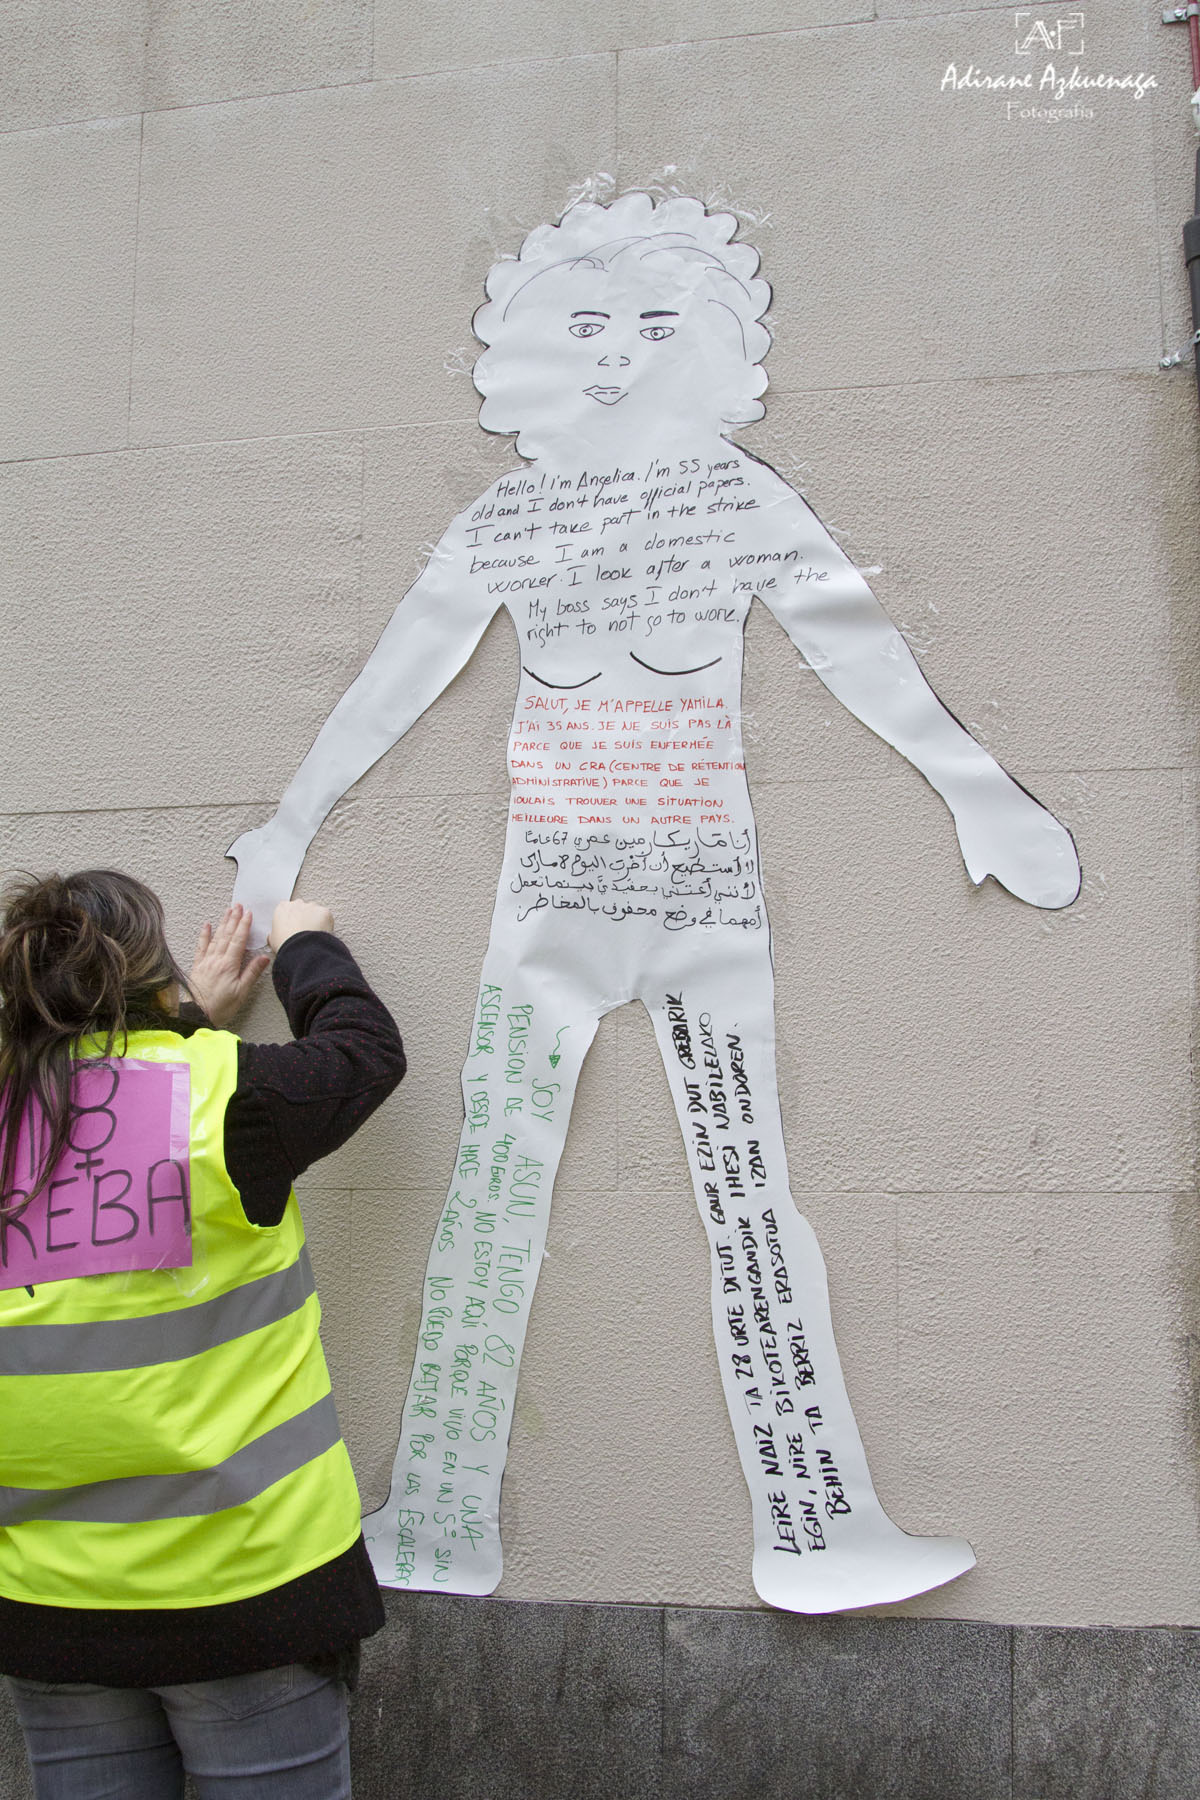 A·F
Adirane Azkuenaga
Fotografia
Hello! I'm Angelica. I'm 55 years
old and I don't have official papers.
I can't take part in the strike
because I am a domestic
worker. I look after a woman.
My boss says I don't have the
right to not go to work.
SALUT, JE M'APPELLE YAMILA.
J'AI 35 ANS. JE NE SUIS PAS LÀ
PARCE QUE JE SUIS ENFERMÉE
DANS UN CRA (CENTRE DE RÉTENTION
ADMINISTRATIVE) PARCE QUE JE
VOULAIS TROUVER UNE SITUATION
MEILLEURE DANS UN AUTRE PAYS.
أنا ماريكارمين عمري 67 عامًا
لا أستطيع أن أضرب اليوم 8 مارس
لأنني أعتني بحفيدتي بينما تعمل
أمهما في وضع محفوف بالمخاطر.
SOY ASUN, TENGO 82 AÑOS Y UNA
PENSION DE 400 EUROS. NO ESTOY AQUÍ PORQUE VIVO EN UN 5º SIN
ASCENSOR Y DESDE HACE 2 AÑOS NO PUEDO BAJAR POR LAS ESCALERAS
LEIRE NAIZ TA 28 URTE DITUT. GAUR EZIN DUT GREBARIK
EGIN, NIRE BIKOTEARENGANDIK IHESI NABILELAKO
BEHIN TA BERRIZ ERASOTUA IZAN ONDOREN.
M8
REBA